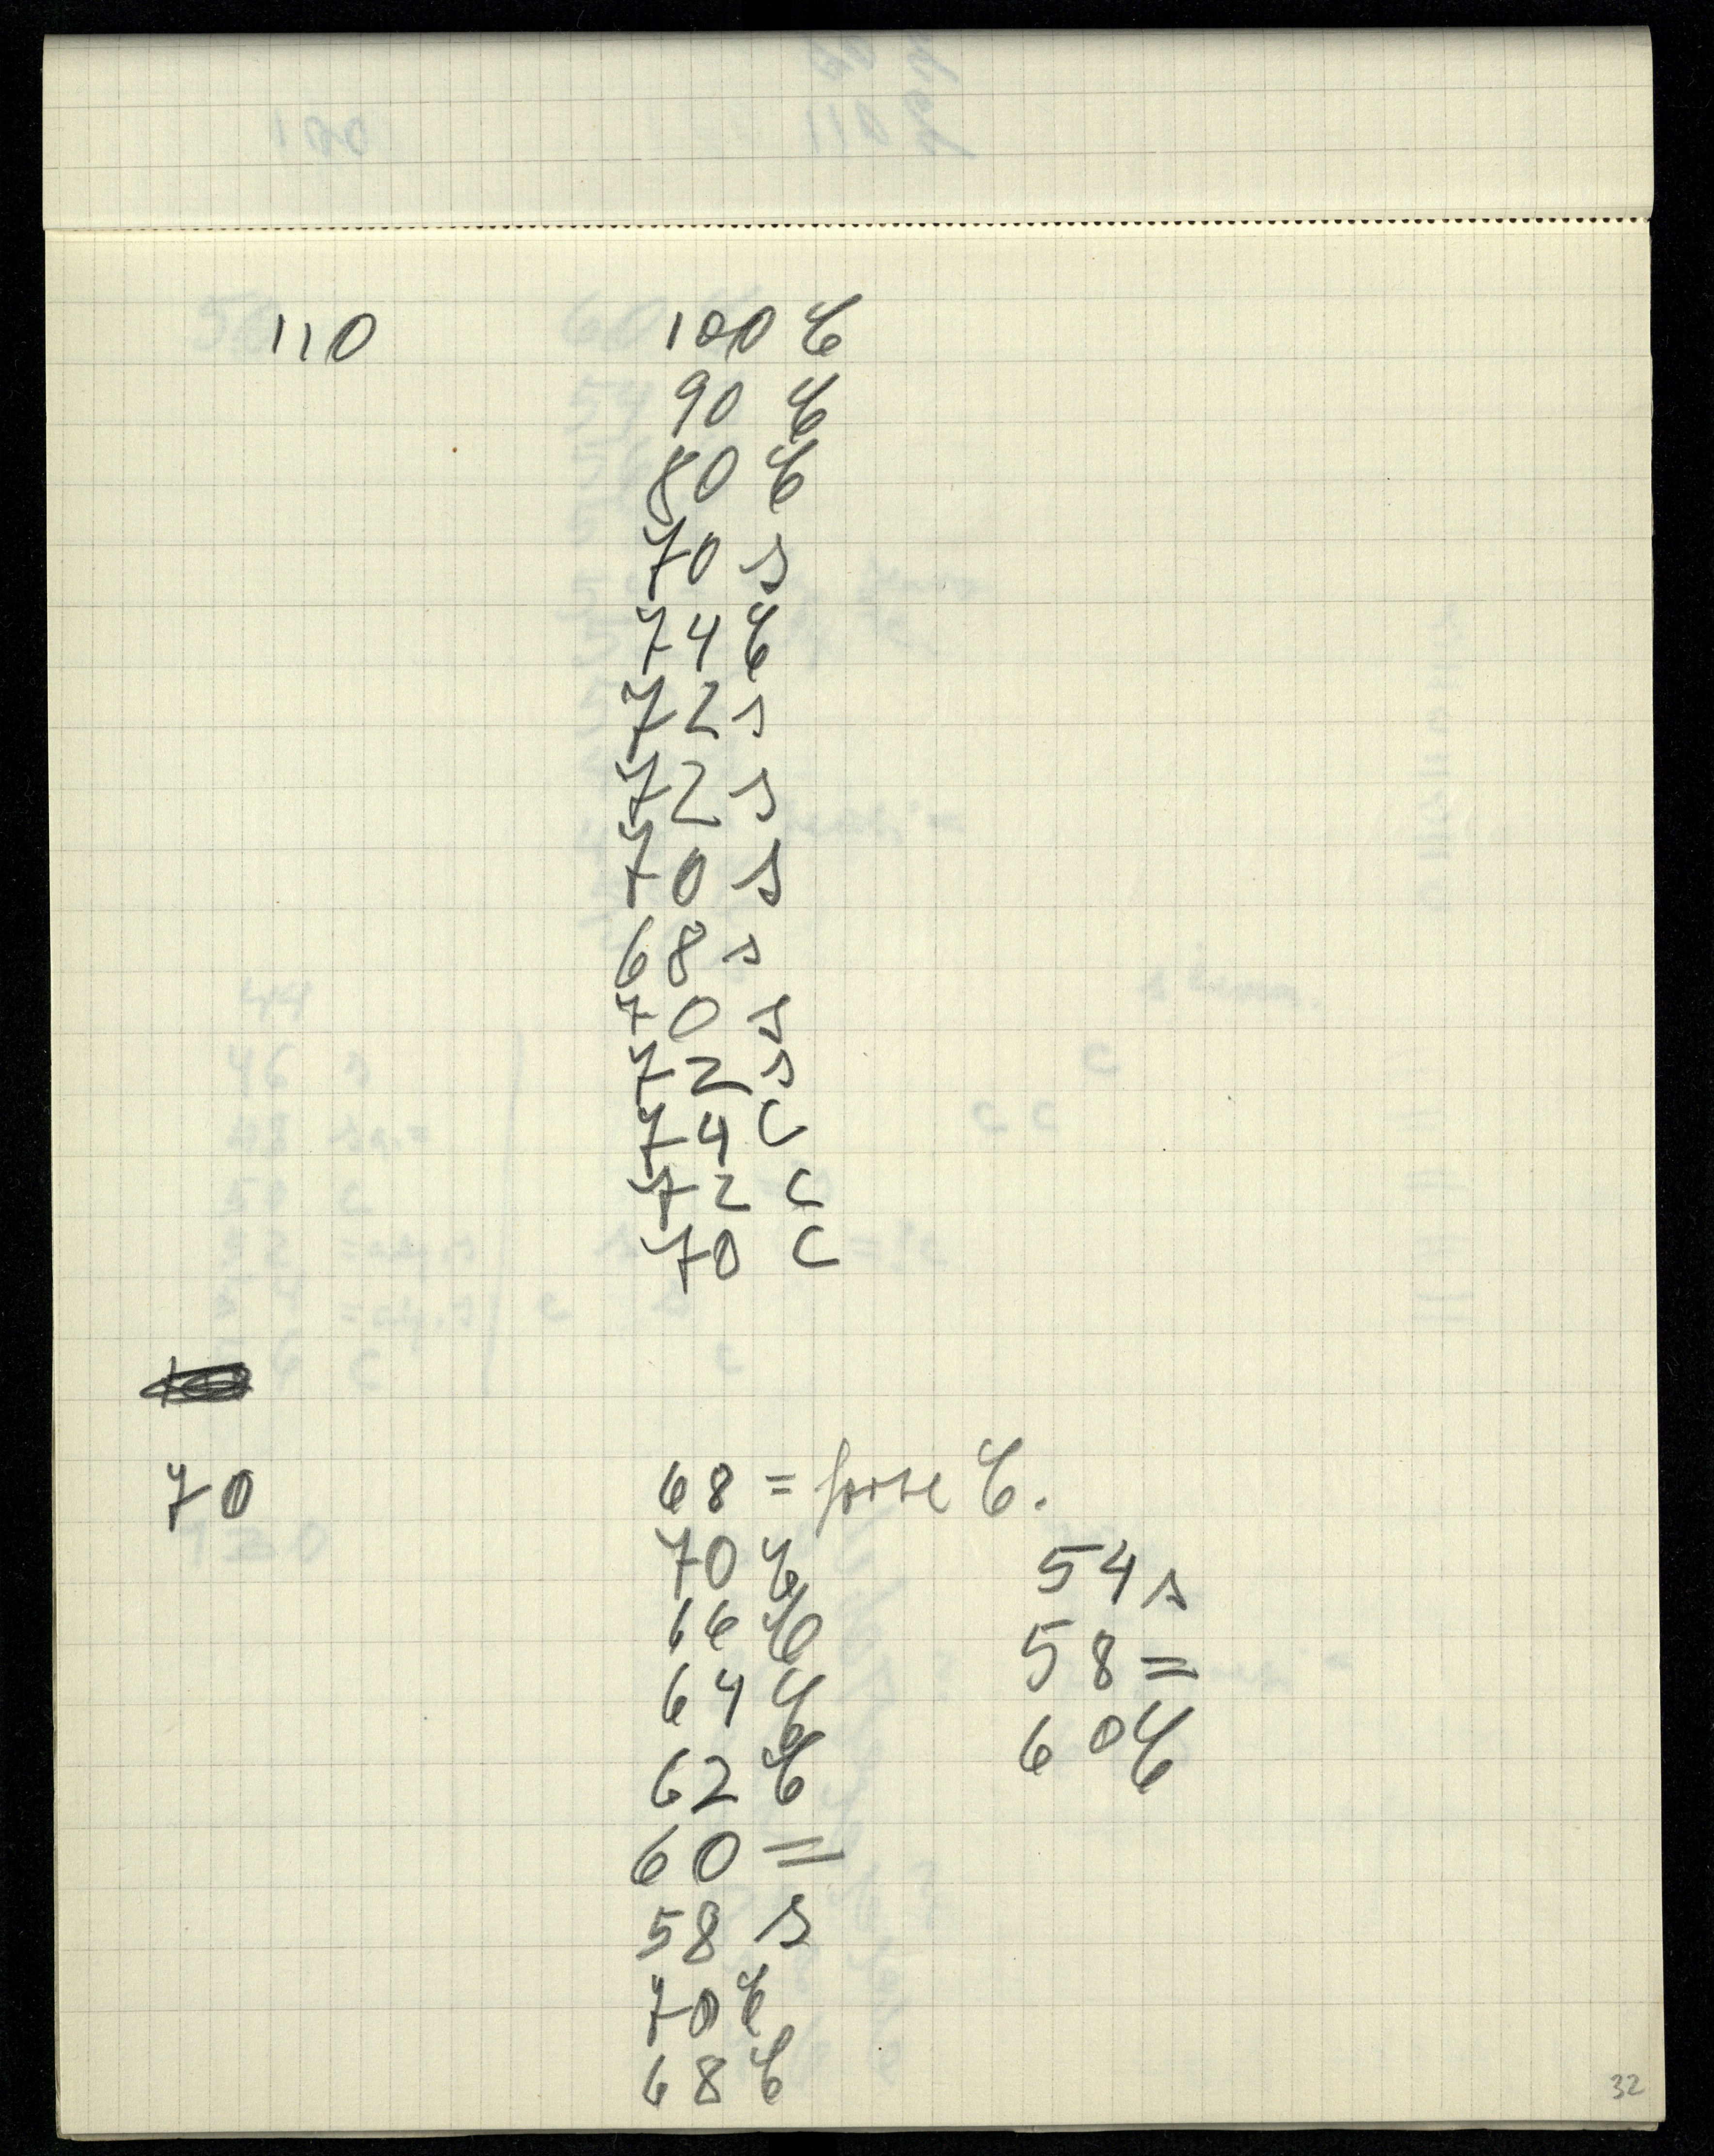 110 100 C
90 C
80 C
70 s
74 C
72 s
72 s
70 s
68 s
70 s
72 s
74 C
72 C
70 C
70 68 = forse C.
70 C 54 s
66 C 58 =
64 C 60 C
62 C
60 =
58 s
70 C
68 C
32